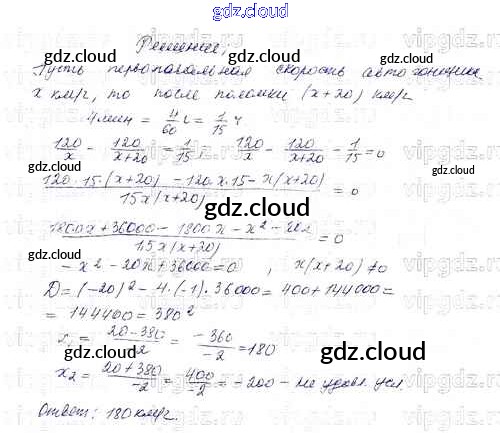 gdz.cloud
Решение:
gdz.cloud gdz.cloud
Пусть первоначальная скорость автогонщика
x км/ч, то после поломки (x+20) км/ч
4 мин = 4/60 ч = 1/15 ч
120/x - 120/(x+20) = 1/15; 120/x - 120/(x+20) - 1/15 = 0
gdz.cloud gdz.cloud
(120·15·(x+20) - 120·x·15 - x(x+20))/(15x(x+20)) = 0
gdz.cloud
(1800x + 36000 - 1800x - x² - 20x)/(15x(x+20)) = 0
- x² - 20x + 36000 = 0, x(x+20) ≠ 0
gdz.cloud gdz.cloud
D = (-20)² - 4·(-1)·36000 = 400 + 144000 =
= 144400 = 380²
x₁ = (20-380)/-2 = -360/-2 = 180
gdz.cloud gdz.cloud
x₂ = (20+380)/-2 = 400/-2 = -200 - не удовл. усл
Ответ: 180 км/ч.
gdz.cloud